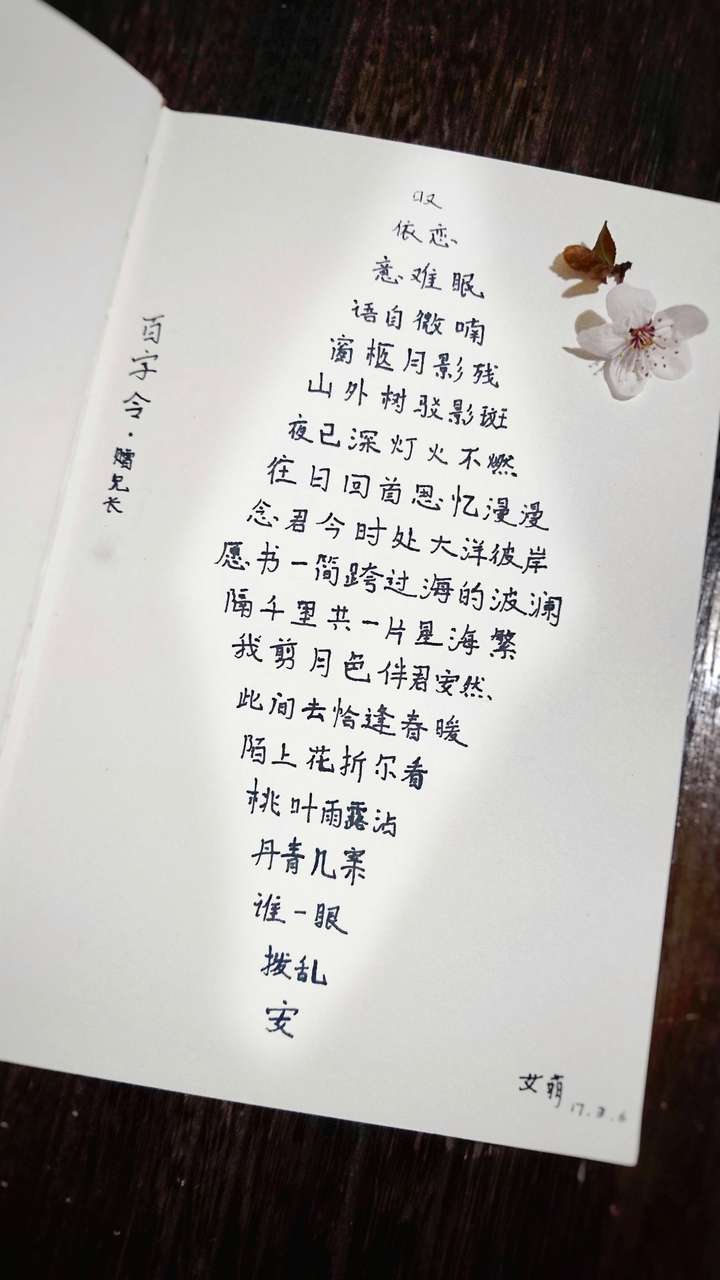 百字令·赠兄长
叹
依恋
意难眠
语自微喃
窗柩月影残
山外树驳影斑
夜已深灯火不燃
往日回首思忆漫漫
念君今时处大洋彼岸
愿书一简跨过海的波澜
隔千里共一片星海繁
我剪月色伴君安然
此间去恰逢春暖
陌上花折尔看
桃叶雨露沾
丹青几案
谁一眼
拨乱
安
艾萌 17.3.6